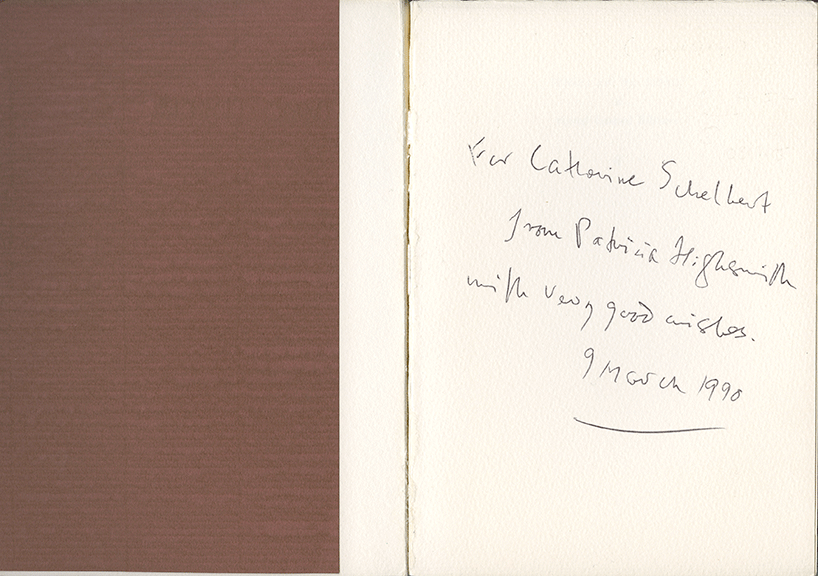 For Catherine Schelbert
from Patricia Highsmith
with very good wishes.
9 March 1990